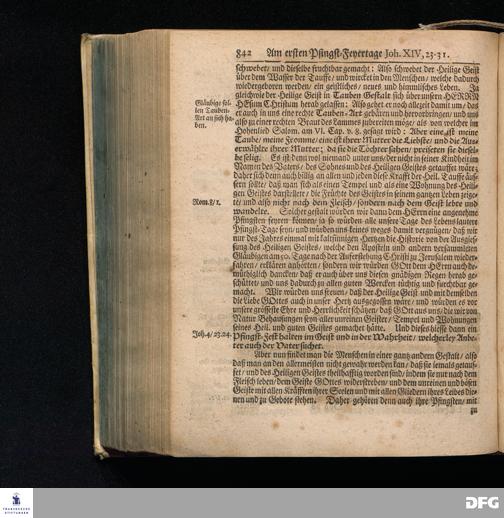 842 Am ersten Pfingst-Feyertage Joh. XIV, 23-31.
schwebet/ und dieselbe fruchtbar gemacht: Also schwebet der Heilige Geist
über dem Wasser der Tauffe/ und würcket in den Menschen/ welche dadurch
wiedergeboren werden/ ein geistliches/ neues und himmlisches Leben. Ja
gleichwie der Heilige Geist in Tauben Gestalt sich über unsern HERRN
JEsum Christum herab gelassen: Also gehet er noch allezeit damit um/ daß
er auch in uns eine rechte Tauben-Art gebären und hervorbringen/ und uns
also zu einer rechten Braut des Lammes zubereiten möge/ als von welcher im
Hohenlied Salom. am VI. Cap. v. 8. gesagt wird: Aber eine ist meine
Taube/ meine Fromme/ eine ist ihrer Mutter die Liebste/ und die Aus-
erwählte ihrer Mutter; da sie die Töchter sahen/ preiseten sie diesel-
be selig. Es ist denn wol niemand unter uns/ der nicht in seiner Kindheit im
Namen des Vaters/ des Sohnes und des Heiligen Geistes getauffet wäre;
daher sich denn auch billig an allen und jeden diese Krafft der Heil. Tauffe äus-
sern sollte/ daß man sich als einen Tempel und als eine Wohnung des Heili-
gen Geistes darstellete/ die Früchte des Geistes in seinem gantzen Leben zeige-
te/ und also nicht nach dem Fleisch/ sondern nach dem Geist lebte und
wandelte. Solcher gestalt würden wir dann dem HErrn eine angenehme
Pfingsten feyren können/ ja so würden alle unsere Tage des Lebens lautere
Pfingst-Tage seyn/ und würden uns keines weges damit vergnügen/ daß wir
nur des Jahres einmal mit kaltsinnigen Hertzen die Historie von der Ausgies-
sung des Heiligen Geistes/ welche den Aposteln und andern versammleten
Gläubigen am 50. Tage nach der Auferstehung Christi zu Jerusalem wieder-
fahren/ erklären anhörten/ sondern wir würden GOtt dem HErrn auch de-
müthiglich dancken/ daß er auch über uns diesen gnädigen Regen herab ge-
schüttet/ und uns dadurch zu allen guten Wercken tüchtig und fruchtbar ge-
macht. Wir würden uns freuen/ daß der Heilige Geist und mit demselben
die Liebe GOttes auch in unser Hertz ausgegossen wäre/ und würden es vor
unsere grösseste Ehre und Herrlichkeit schätzen/ daß GOtt aus uns/ die wir von
Natur Behausungen seyn aller unreinen Geister/ Tempel und Wohnungen
seines Heil. und guten Geistes gemacht hätte. Und dieses hiesse dann ein
Pfingst-Fest halten im Geist und in der Wahrheit/ welcherley Anbe-
ter auch der Vater suchet.
Aber nun findet man die Menschen in einer gantz andern Gestalt/ also
daß man an den allermeisten nicht gewahr werden kan/ daß sie jemals getauf-
fet/ und des Heiligen Geistes theilhafftig worden sind/ indem sie nur nach dem
Fleisch leben/ dem Geiste GOttes widerstreben/ und dem unreinen und bösen
Geiste mit allen Kräfften ihrer Seelen und mit allen Gliedern ihres Leibes die-
nen und zu Gebote stehen. Daher gehören denn auch ihre Pfingsten/ mit
zu
Gläubige sol-
len Tauben-
Art an sich ha-
ben.
Rom. 8/1.
Joh. 4/23.24.
FRANCKESCHE
STIFTUNGEN
DFG